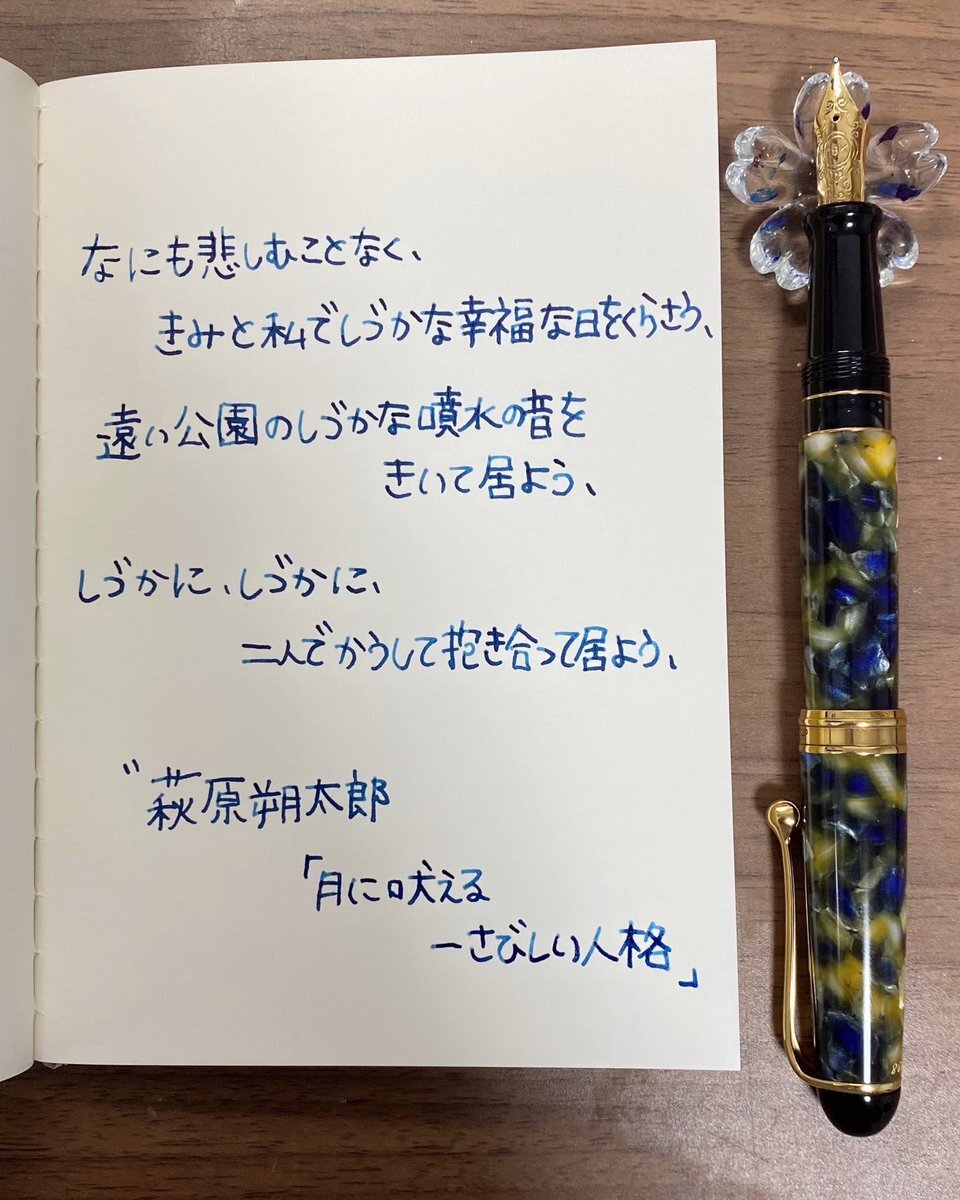 なにも悲しむことなく、
きみと私でしづかな幸福な日をくらさう、
遠い公園のしづかな噴水の音を
きいて居よう、
しづかに、しづかに、
二人でかうして抱き合って居よう、
〃萩原朔太郎
「月に吠える
ーさびしい人格」